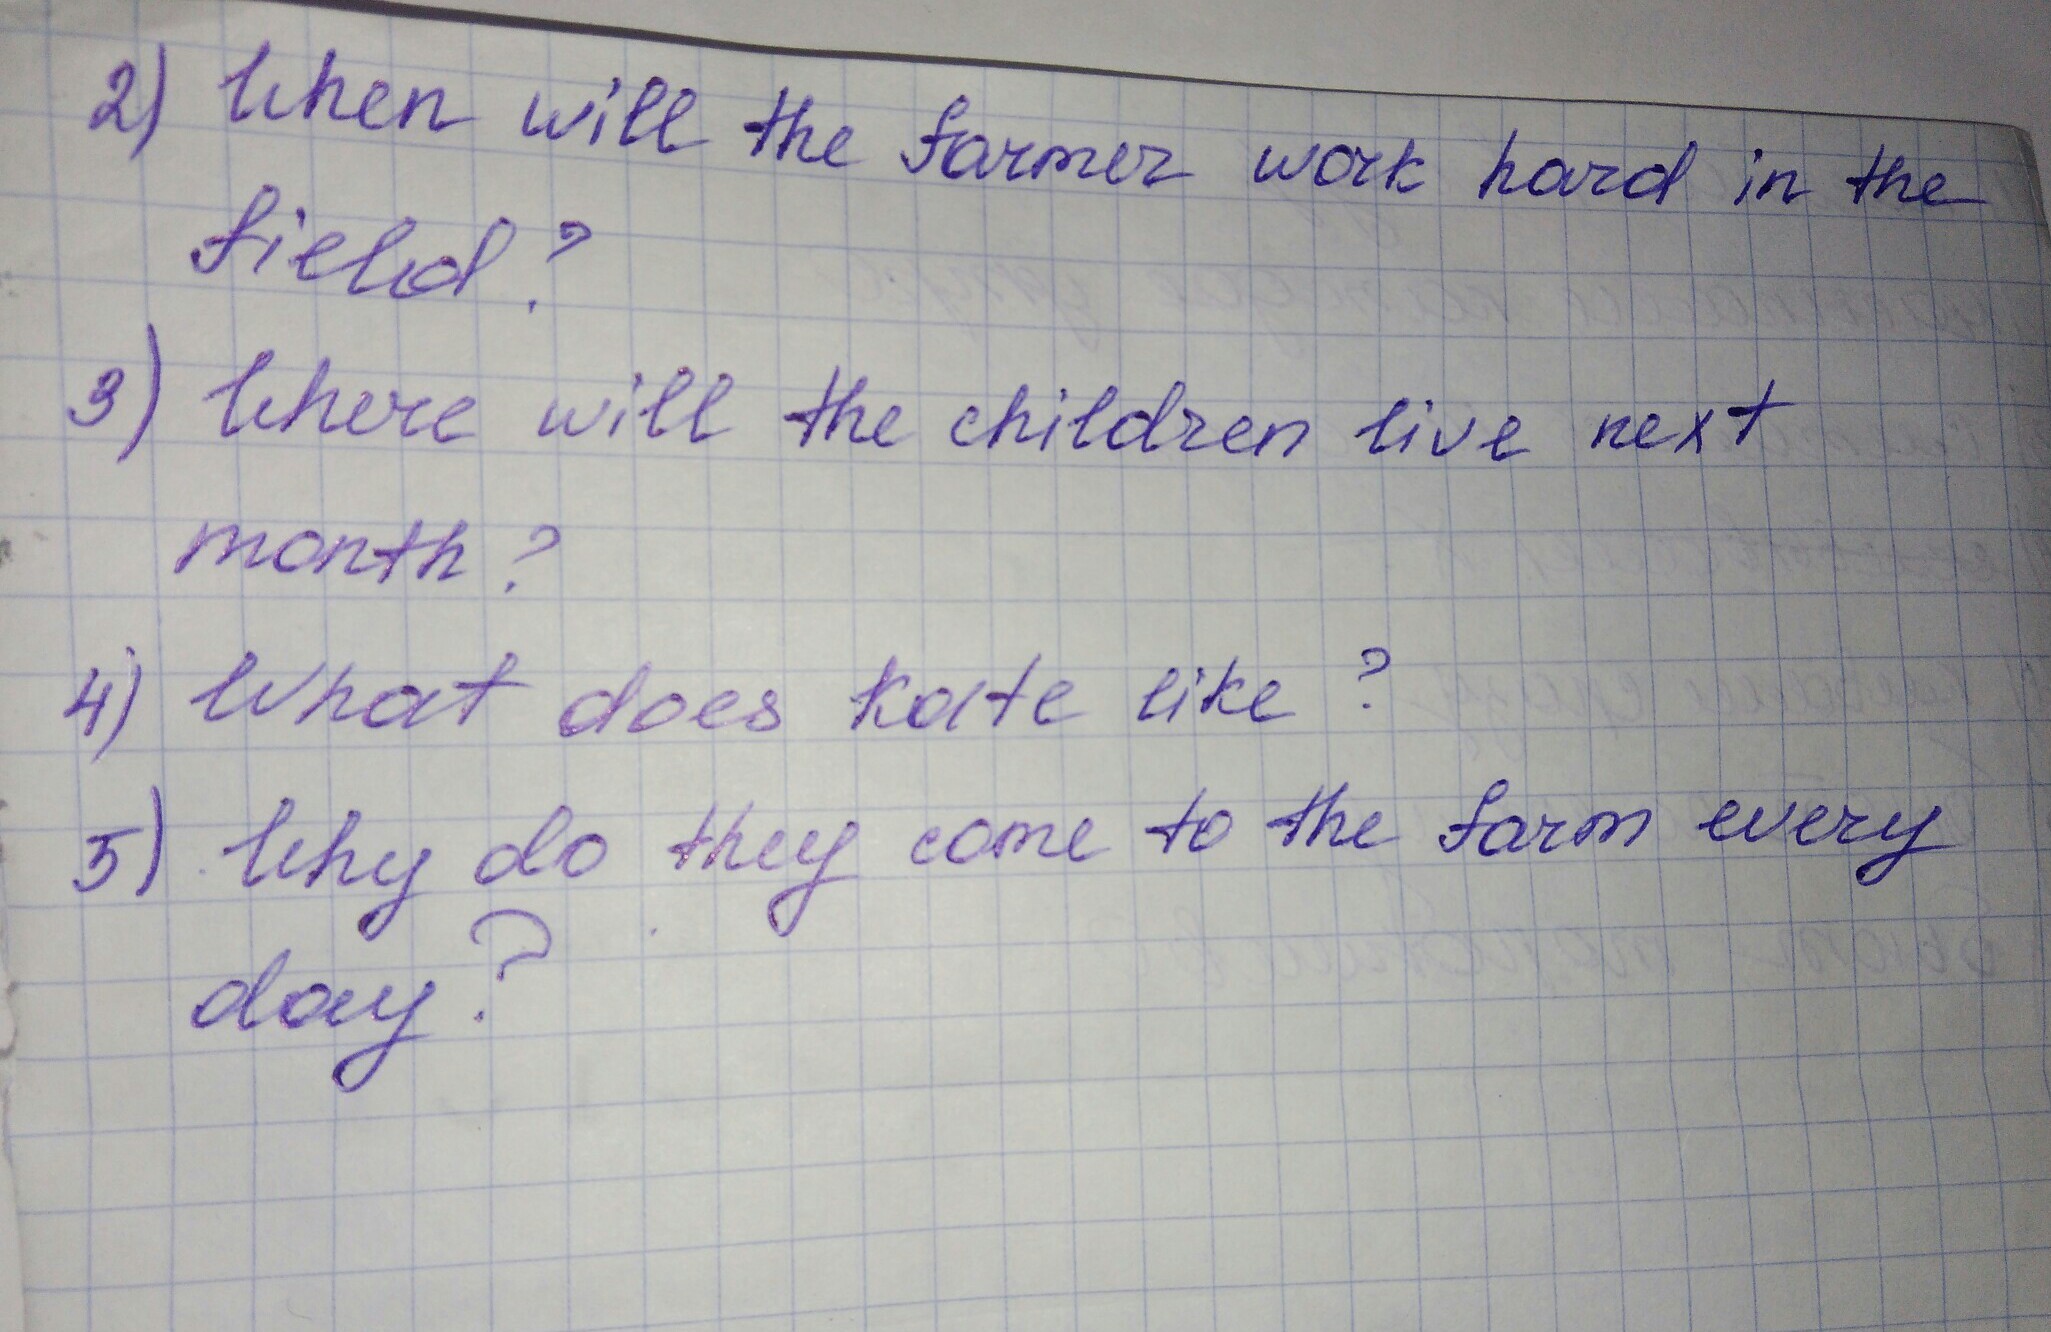 2) When will the farmer work hard in the
field?
3) Where will the children live next
month?
4) What does Kate like?
5) Why do they come to the farm every
day?